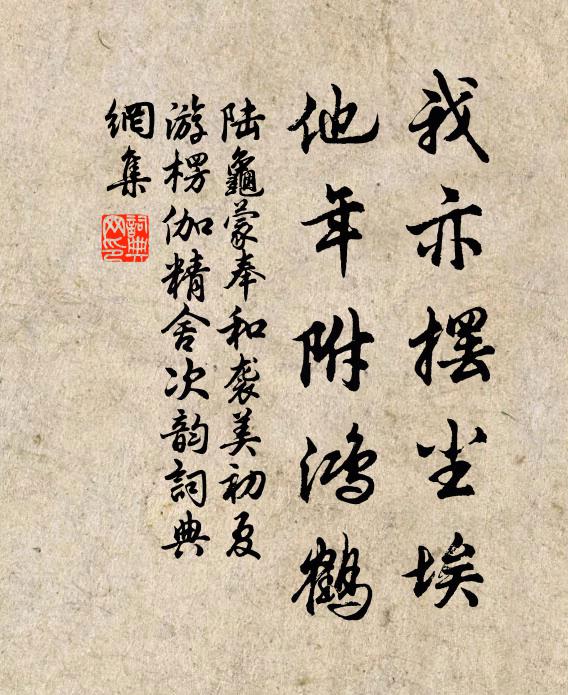 我亦摆尘埃
他年附鸿鹤
陆龜蒙奉和袭美初夏
游楞伽精舍次韵詞典
網集
詞典
网印